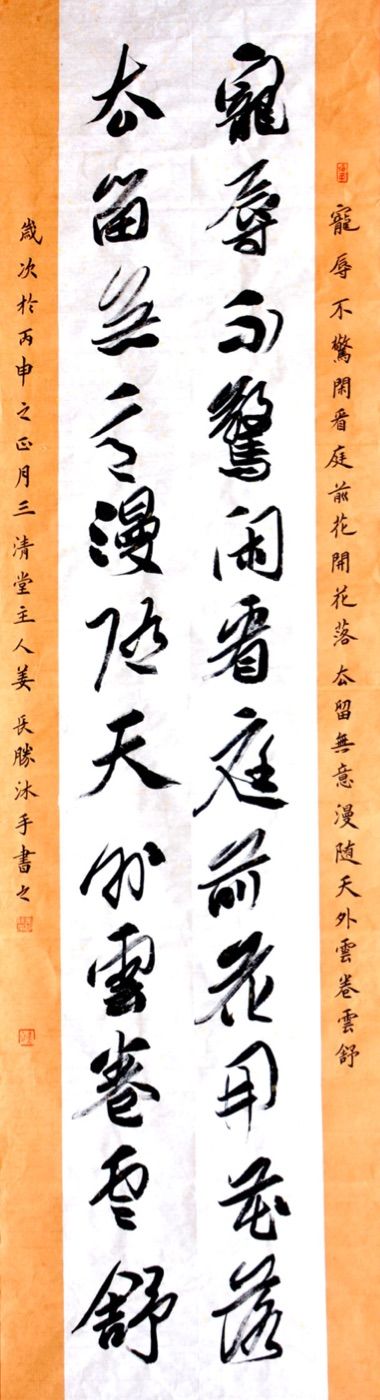 寵辱不驚閑看庭前花開花落去留無意漫随天外雲卷雲舒
寵辱不驚閑看庭前花開花落
去留無意漫随天外雲卷雲舒
歲次於丙申之正月三清堂主人姜長勝沐手書之